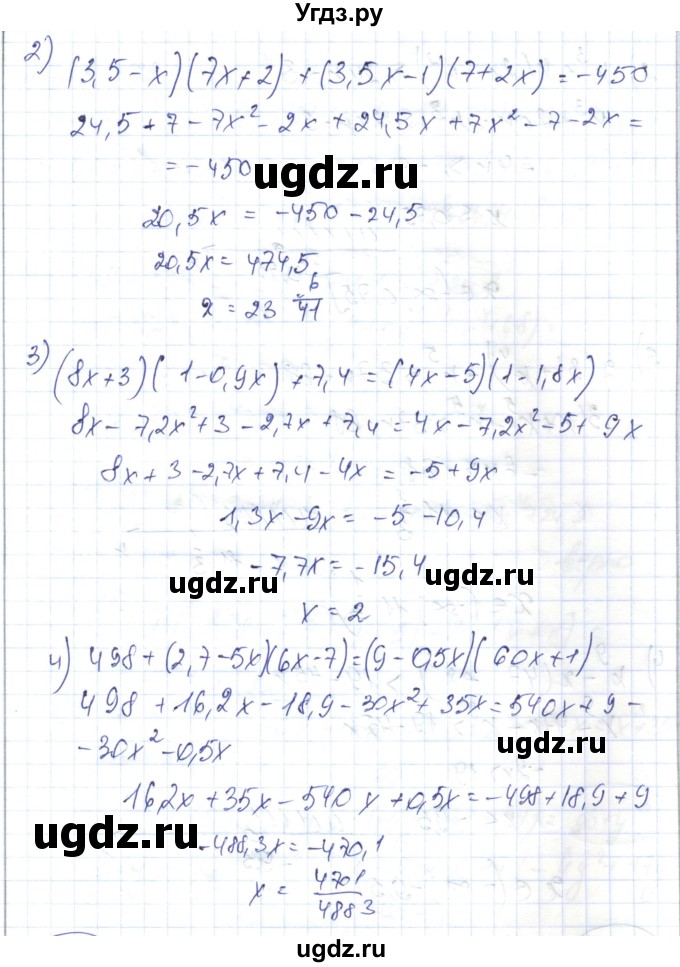 Угдз.ру
2) (3,5-x)(7x+2)+(3,5x-1)(7+2x)=-450
24,5+7-7x²-2x+24,5x+7x²-7-2x=
=-450
ugdz.ru
20,5x=-450-24,5
ugdz.ru
20,5x=474,5
x=23 6/41
3) (8x+3)(1-0,9x)+7,4=(4x-5)(1-1,8x)
8x-7,2x²+3-2,7x+7,4=4x-7,2x²-5+9x
8x+3-2,7x+7,4-4x=-5+9x
1,3x-9x=-5-10,4
-7,7x=-15,4
ugdz.ru
ugdz.ru
x=2
4) 498+(2,7-5x)(6x-7)=(9-0,5x)(60x+1)
498+16,2x-18,9-30x²+35x=540x+9-
-30x²-0,5x
ugdz.ru
16,2x+35x-540x+0,5x=-498+18,9+9
ugdz.ru
-488,3x=-470,1
x=4701/4883
ugdz.ru
ugdz.ru